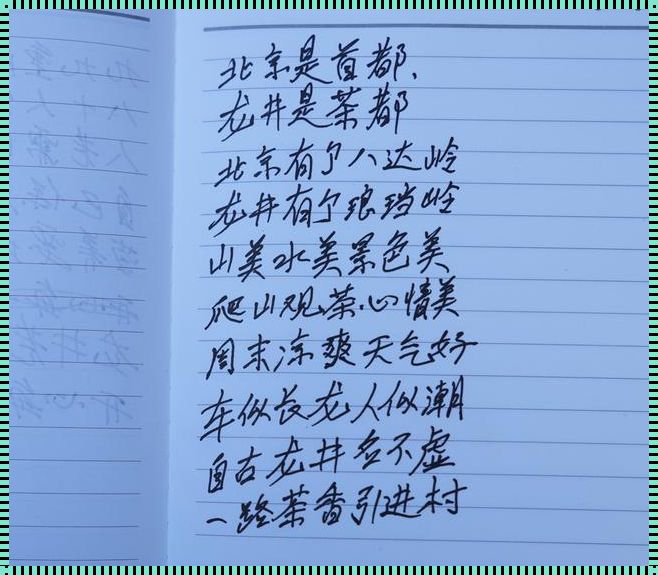 北京是首都、
龙井是茶都
北京有个八达岭
龙井有个琅珰岭
山美水美景色美
爬山观茶心情美
周末凉爽天气好
车似长龙人似潮
自古龙井名不虚
一路茶香引进村